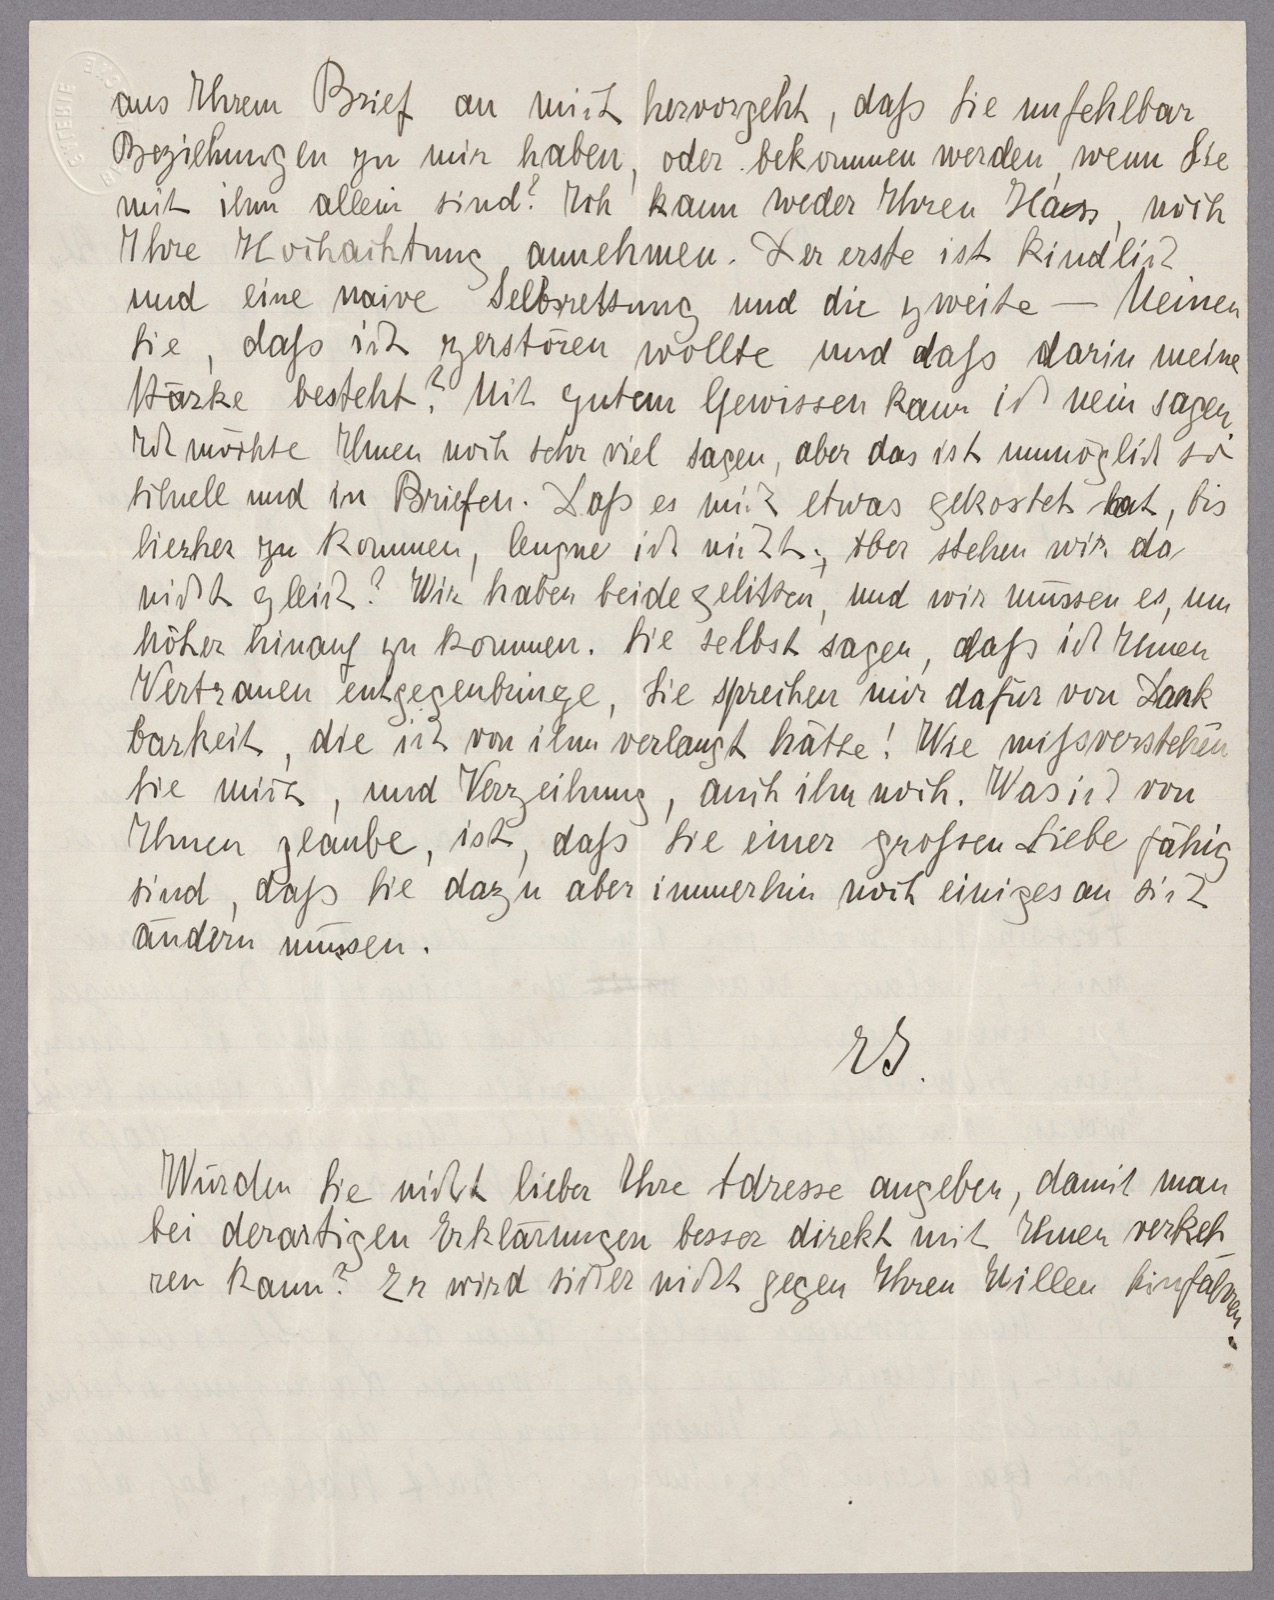 aus Ihrem Brief an mich hervorgeht, daß Sie unfehlbar
Beziehungen zu mir haben, oder bekommen werden, wenn Sie
mit ihm allein sind? Ich kann weder Ihren Hass, noch
Ihre Hochachtung annehmen. Der erste ist kindlich
und eine naive Selbsrettung und die zweite — Meinen
Sie, daß ich zerstören wollte und daß darin meine
Stärke besteht? Mit gutem Gewissen kann ich nein sagen,
Ich möchte Ihnen noch sehr viel sagen, aber das ist unmöglich so
schnell und in Briefen. Daß es mich etwas gekostet hat, bis
hierher zu kommen, leugne ich nicht; Aber stehen wir da
nicht gleich? Wir haben beide gelitten, und wir müssen es, um
höher hinauf zu kommen. Sie selbst sagen, daß ich Ihnen
Vertrauen entgegenbringe, Sie sprechen mir dafür von Dank
barkeit, die ich von ihm verlangt hätte! Wie mißverstehen
Sie mich, und Verzeihung, auch ihm noch. Was ich von
Ihnen glaube, ist, daß Sie einer großen Liebe fähig
sind, daß Sie dazu aber immerhin noch einiges an sich
ändern müssen.
Würden Sie nicht lieber Ihre Adresse angeben, damit man
bei derartigen Erklärungen besser direkt mit Ihnen verkeh
ren kann? Er wird sicher nicht gegen Ihren Willen hinfahren.